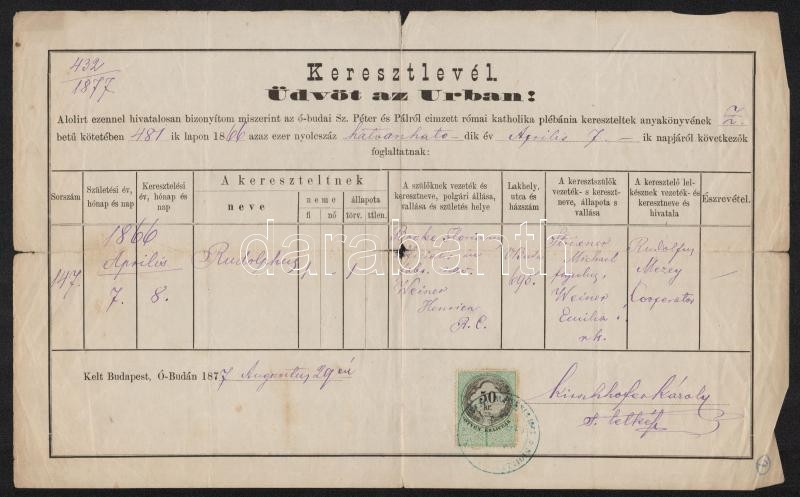 432
1877
Keresztlevél.
Üdvöt az Urban!
Alolirt ezennel hivatalosan bizonyítom miszerint az ó-budai Sz. Péter és Pálról cimzett római katholika plébánia kereszteltek anyakönyvének
betű kötetében 481 ik lapon 1866 azaz ezer nyolcszáz hatvanhato- dik év Április 7. - ik napjáról következők
foglaltatnak:
Sorszám
Születési év, hónap és nap
Keresztelési év, hónap és nap
A kereszteltnek
neve
neme
fi
nő
állapota
törv.
ttlen.
A szülőknek vezeték és
keresztneve, polgári állása,
vallása és születés helye
Lakhely,
utca és
házszám
A keresztszülők
vezeték- s kereszt-
neve, állapota s
vallása
A keresztelő lel-
késznek vezeték- és
keresztneve és
hivatala
Észrevétel.
147.
1866
Április
7. 8.
Rudolphus
1
1
Weiner
Henrica
R. C.
290.
Michael
Weiner
Emilia
r.k.
Rudolfus
Mezey
Cooperator
—
Kelt Budapest, Ó-Budán 1877 Augustus 29 én
50
KR.
ÖTVEN KRAJCZÁR
Kirchhofer Károly
s. lelkész
darabanth